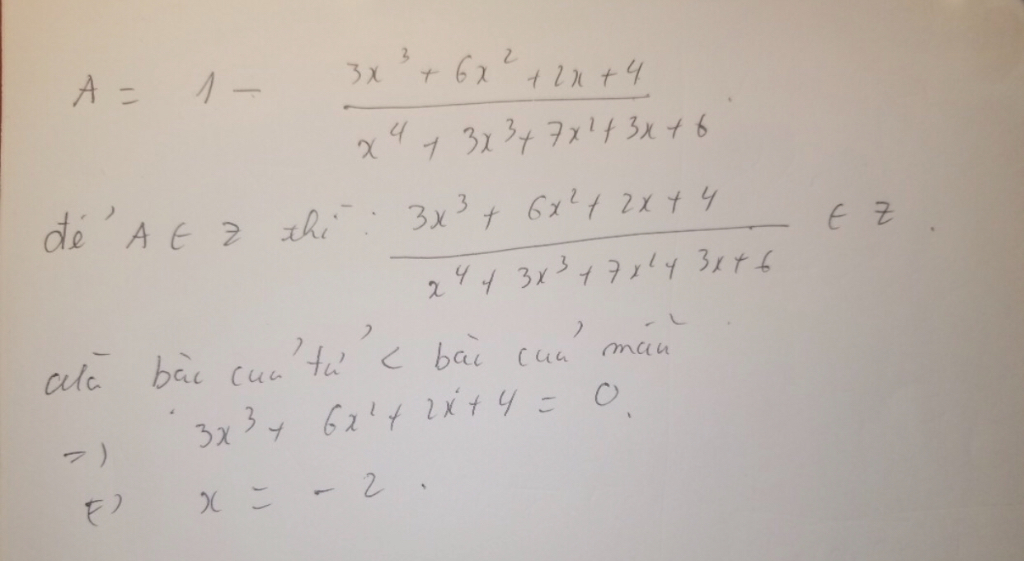 A = 1 - \frac{3x^3 + 6x^2 + 2x + 4}{x^4 + 3x^3 + 7x^2 + 3x + 6}.
để A ∈ Z thì: \frac{3x^3 + 6x^2 + 2x + 4}{x^4 + 3x^3 + 7x^2 + 3x + 6} ∈ Z.
bậc của tử < bậc của mẫu
=> 3x^3 + 6x^2 + 2x + 4 = 0.
x = -2.